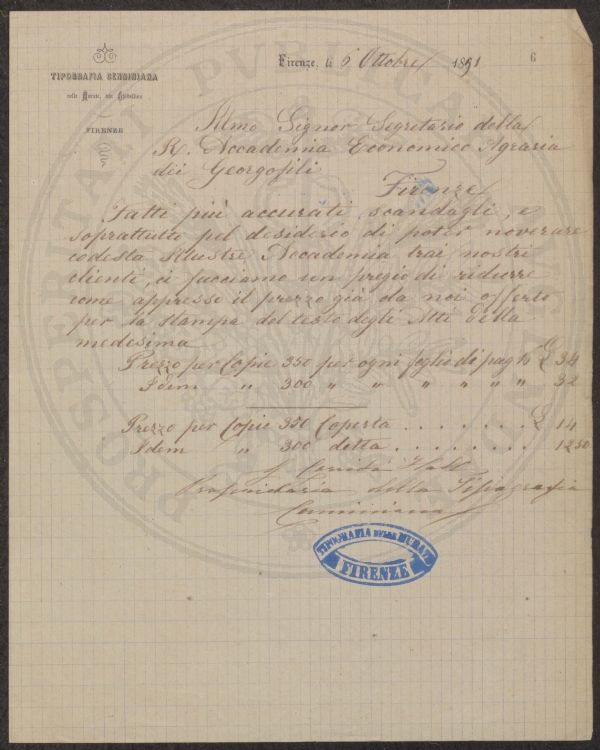 TIPOGRAFIA CENNINIANA
nelle Murate, via Ghibellina
FIRENZE
Firenze, li 6 Ottobre 1891
6
Illmo Signor Segretario della
R. Accademia Economico Agraria
dei Georgofili
Firenze
Fatti più accurati scandagli, e
soprattutto pel desiderio di poter noverare
codesta Illustre Accademia trai nostri
clienti, ci facciamo un pregio di ridurre
come appresso il prezzo già da noi offerto
per la stampa del testo degli Atti della
medesima
Prezzo per Copie 350 per ogni foglio di pag 16 £ 34
Idem " 300 " " " " " 32
Prezzo per Copie 350 Coperta . . . . . . . £ 14
Idem " 300 detta . . . . . . . 1250
Proprietaria della Tipografia
Cenniniana
TIPOGRAFIA DELLE MURATE
FIRENZE
PROSPERITATI PUBLICAE AUGENDAE